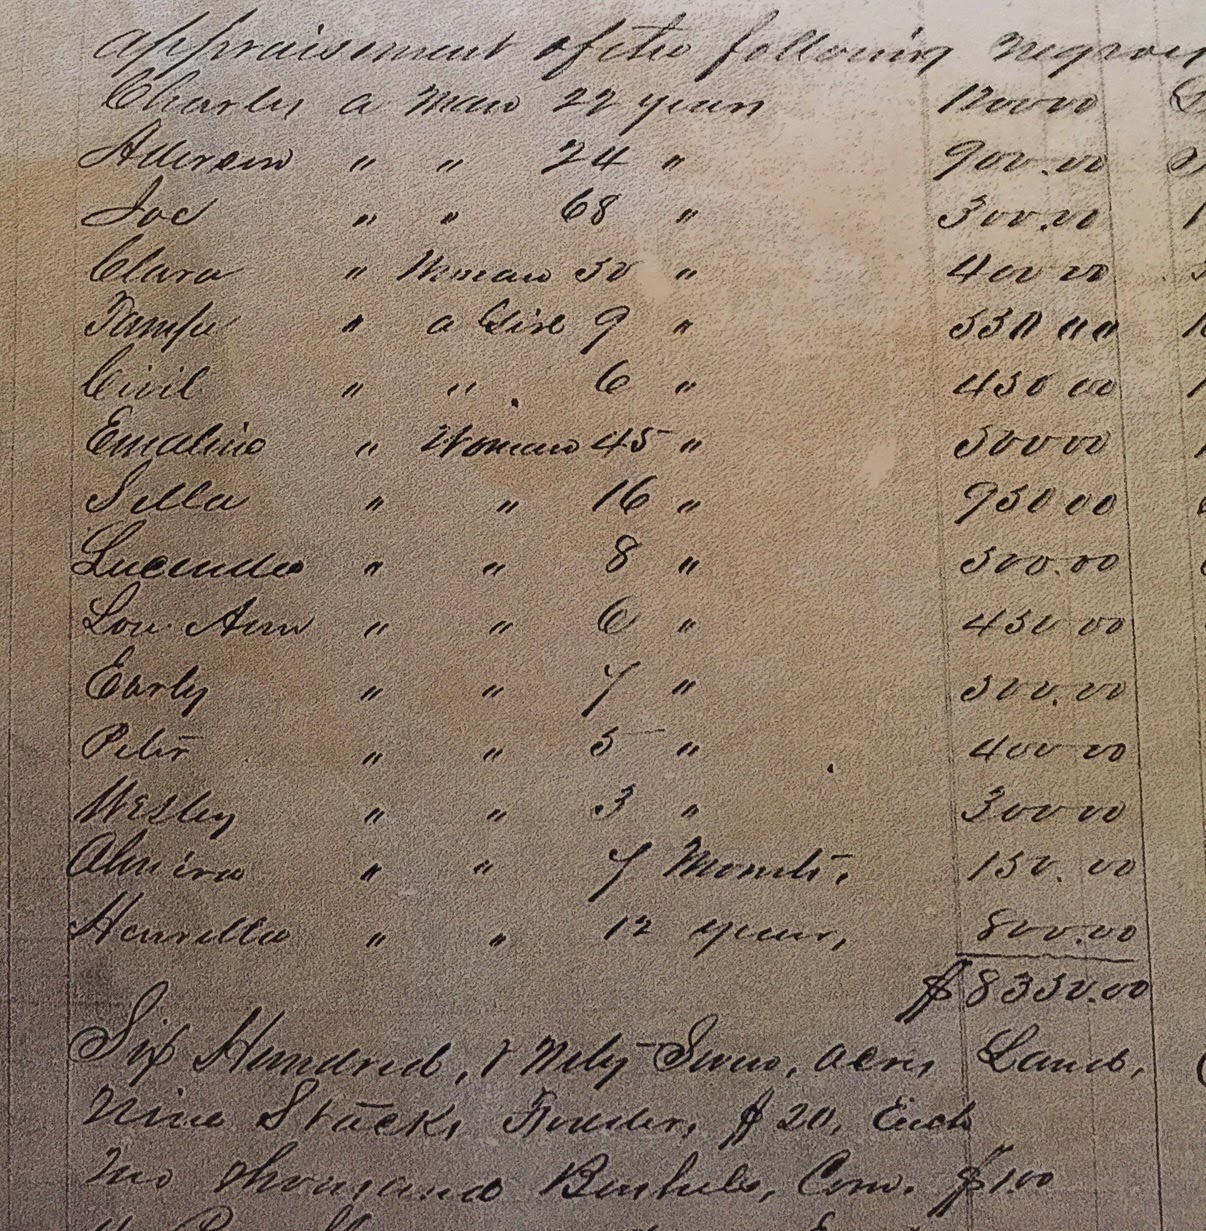 appraisement of the following negroes
Charles a Man 22 years 1200 00
Anderson " " 24 " 900.00
Joe " " 68 " 300.00
Clara " Woman 50 " 400 00
" a Girl 9 " 550 00
Civil " " 6 " 450 00
Emaline " Woman 45 " 500 00
Silla " " 16 " 950 00
Lucinda " " 8 " 500.00
Lou Ann " " 6 " 450 00
Early " " 7 " 500.00
Peter " " 5 " 400 00
Wesley " " 3 " 300 00
Almira " " 7 Months. 150.00
Henrella " " 12 years, 800.00
$8350.00
Six Hundred, & Acres Land,
Nine Stacks Fodder, $20, Each
Two thousand Bushels, Corn. $1.00